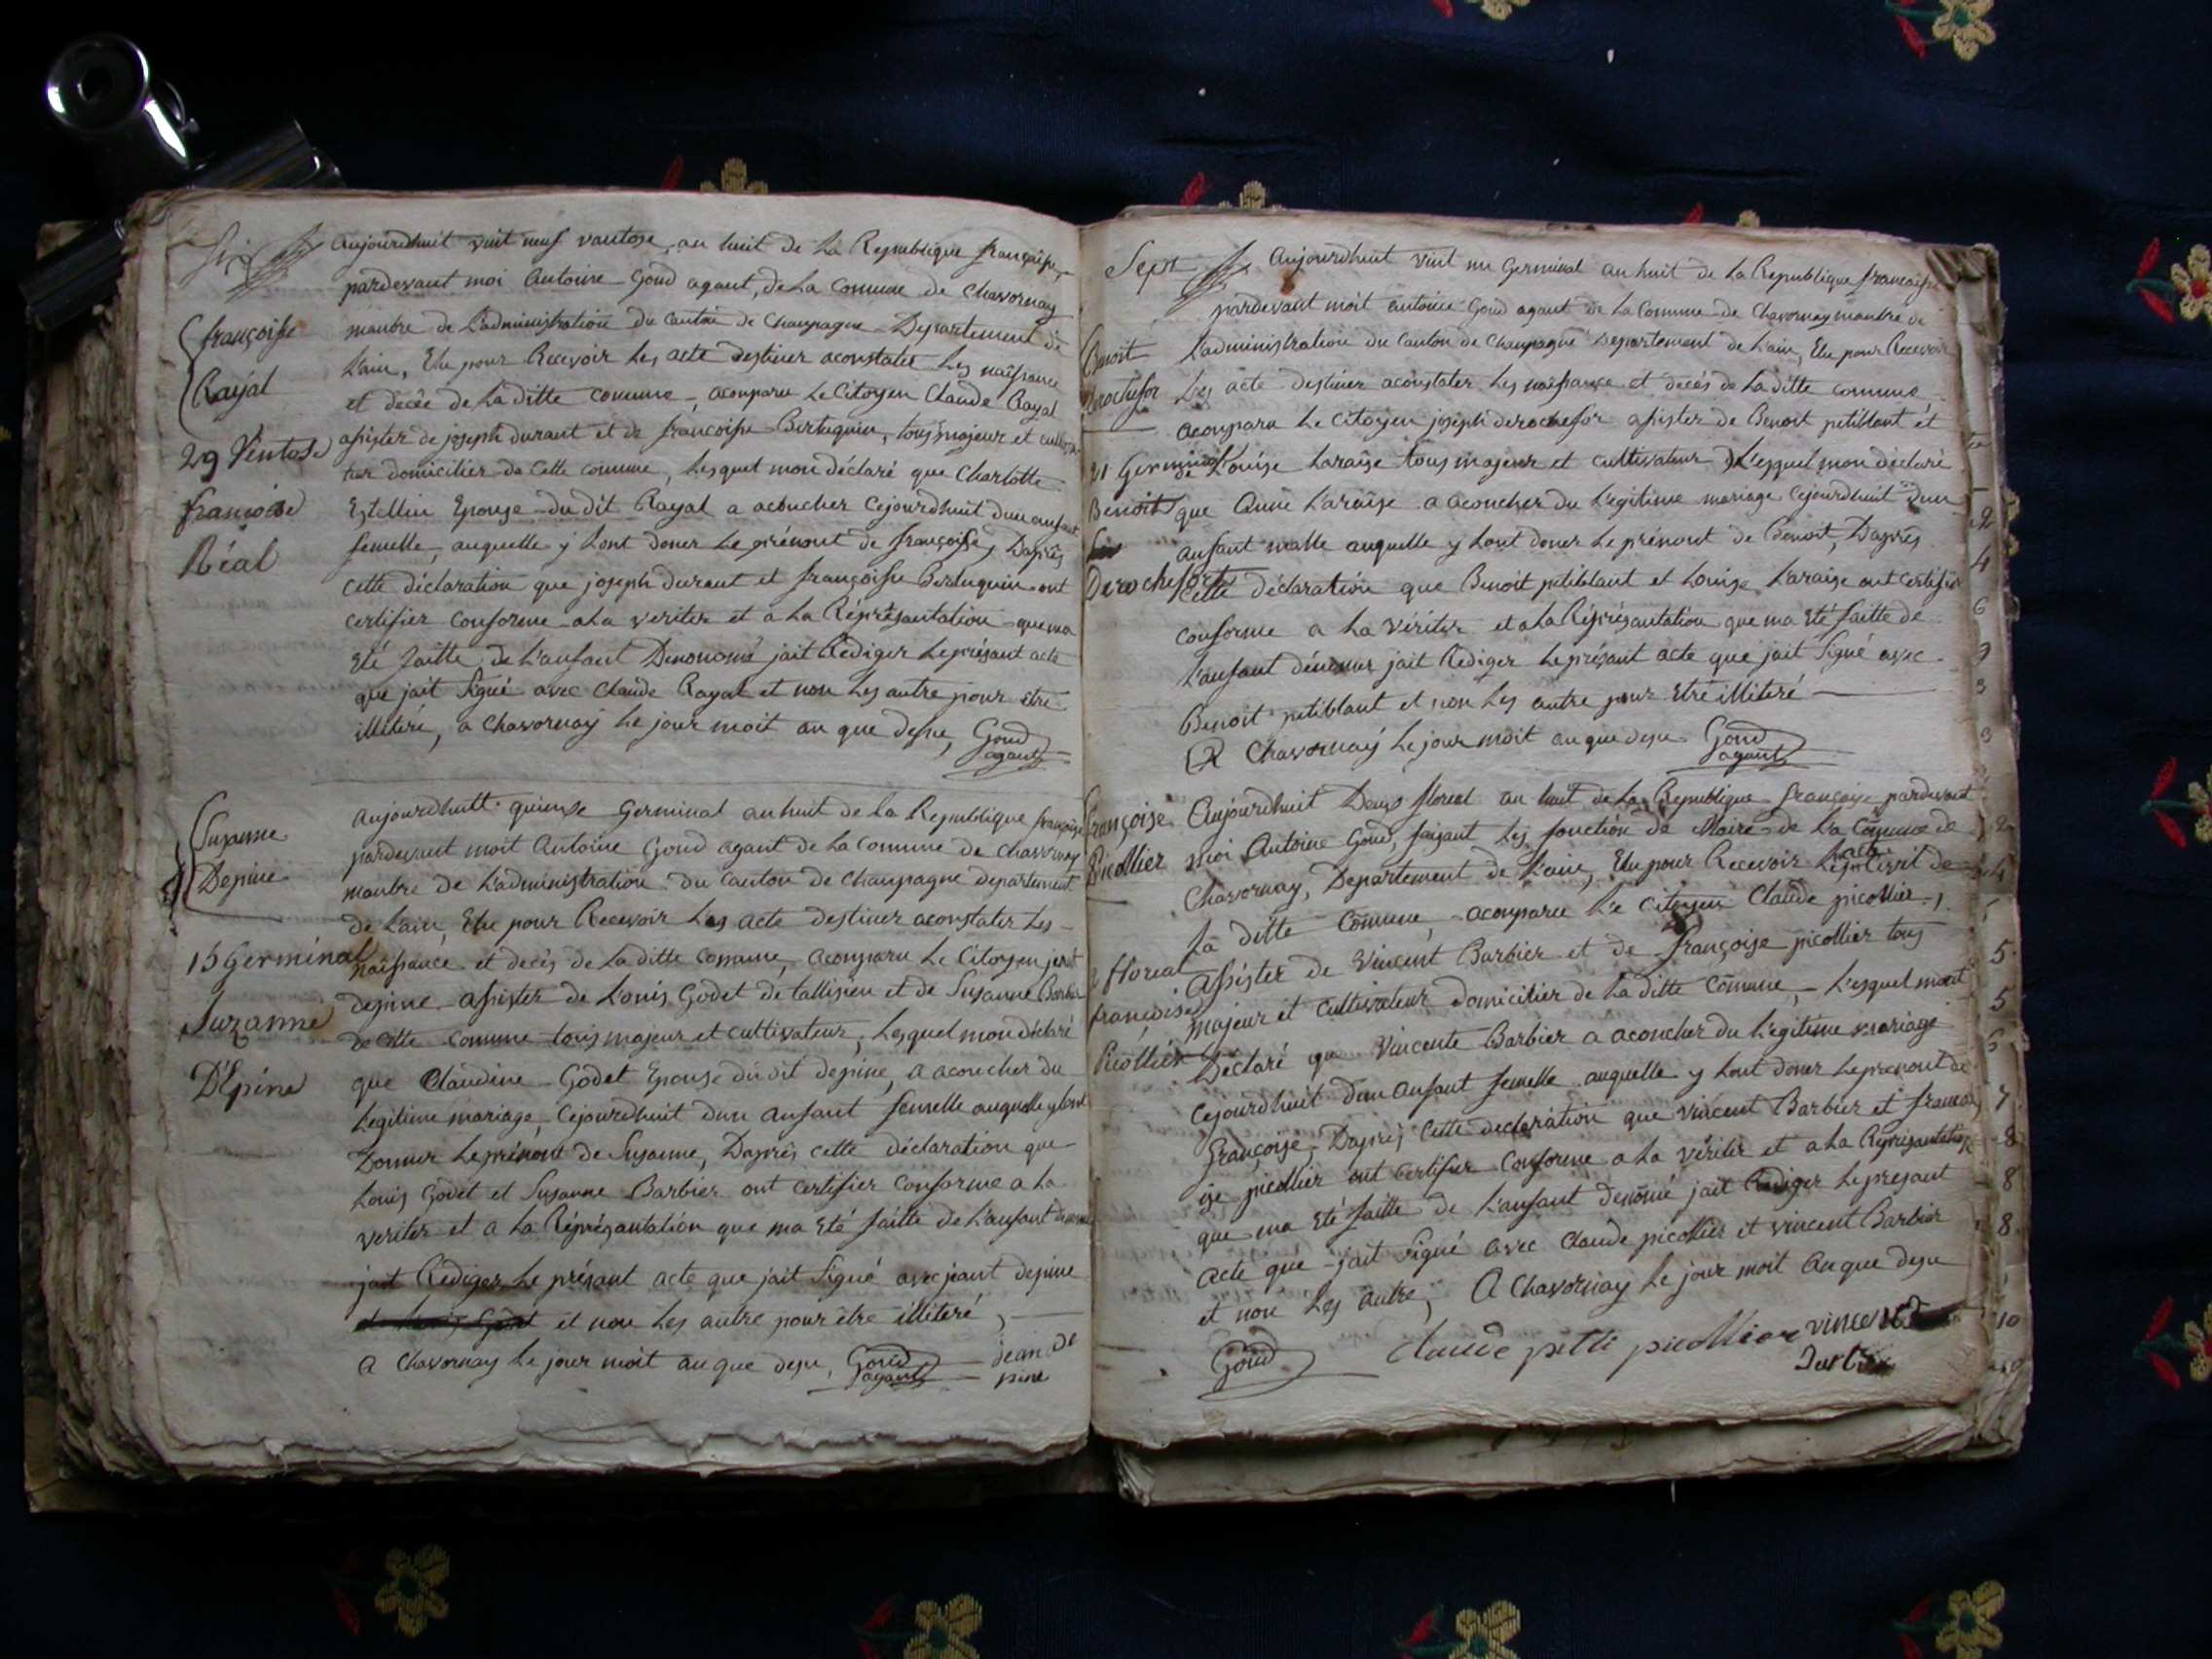 Six
aujourdhuit vint neuf vantose, an huit de la Republique françaisse,
pardevant moi antoine Goud agant, de La Comune de Chavornay
manbre de L'administration du Canton de Champagne Departement de
L'ain, Elu pour Recevoir Les acte destiner aconstater Les naissance
et decée de La ditte comune, aconparu Le Citoyen Claude Rayal
assister de joseph durant et de françoisse Berluquin, tous majeur et
domicilier de Cette comune, Lesquel mon déclaré que Charlotte
Estellin Epouse du dit Rayal a acoucher Cejourdhuit dun anfant
femelle, auquelle y Lont doner Le prénont de françoise, Daprês
Cette déclaration que joseph durant et françoisse Berluquin ont
certifier conforme a La veriter et a La Répresantation que ma
Eté faitte de L'anfant Denonomé jait Rediger Le présant acte
que jait Signé avec Claude Rayal et non Les autre pour etre
illiteré, a Chavornay Le jour moit an que dessu, Goud
agant
françoisse
Rayal
29 Ventose
francoise
Réal
aujourdhuit quinse Germinal an huit de La Republique française
pardevant moit Antoine Goud agant de La comune de chavornay
manbre de L'administration du canton de Champagne departement
de L'ain, Elu pour Recevoir Les acte destiner aconstater Les
naissance et decês de La ditte comune, aconparu Le Citoyen
depine assister de Louis Godet de tallisieu et de Susanne Barbier
de Cette comune tous majeur et cultivateur, Lesquel mon déclaré
que Claudine Godet Epouse du dit depine, a acoucher du
Legitime mariage, Cejourdhuit dun anfant femelle auquelle y Lont
Donner Le prénont de Susanne, Daprês cette déclaration que
Louis Godet et Susanne Barbier ont certifier Conforme a La
veriter et a La Réprésantation que ma Eté faitte de L'anfant
jait Rediger Le présant acte que jait Signé avec jeant depine
et non Les autre pour être illiteré,
a Chavornay Le jour moit an que dessu, Goud
agant
jean de
pine
Suzanne
Depine
15 Germinal
Suzanne
D'Epine
Sept
Aujourdhuit vint un Germinal an huit de La Republique francaisse
pardevant moit antoine Goud agant de La Comune de Chavornay manbre de
L'administration du Canton de Champagne Departement de L'ain, Elu pour Recevoir
Les acte destiner aconstater Les naissance et decés de La ditte comune
aconparu Le Citoyen joseph derochefor assister de Benoit petiblant et
de Louise Laraise tous majeur et cultivateur Lesquel mon déclaré
que Anne Laraise a acoucher du Legitime mariage Cejourdhuit dun
anfant malle auquelle y Lont doner Le prénont de Benoit, Daprês
Cette déclaration que Benoit petiblant et Louise Laraise ont certifier
conforme a La vériter et a La Réprésantation que ma Eté faitte de
L'anfant dénomer jait Rediger Le présant acte que jait Signé avec
Benoit petiblant et non Les autre pour Etre illiteré
A Chavornay Le jour moit an que desu Goud
agant
Benoit
derochefor
21 Germinal
Benoit
Derochefort
Aujourdhuit Deux floreal an huit de La Republique françoise pardevant
moi Antoine Goud, faisant Les fonction de Maire de La Comune de
Chavornay, Departement de L'ain, Elu pour Recevoir Les acte Civil de
La ditte Comune, aconparu Le citoyen Claude picollier,
Assister de Vincent Barbier et de françoise picollier tous
majeur et Cultivateur domicilier de La ditte Comune, Lesquel mont
Déclaré que Vincente Barbier a acoucher du Legitime mariage
Cejourdhuit dun anfant femelle auquelle y Lont doner Le prenont de
françoise, Daprês Cette declaration que Vincent Barbier et franco
ise picollier ont certifier Conforme a La vériter et a La Représantation
que ma Eté faitte de L'anfant denomé jait Rediger Le presant
acte que jait Signé avec Claude picollier et vincent Barbier
et non Les autre, A Chavornay Le jour moit An que desu
Goud
claude petit picollier vincent
Françoise
Picollier
2 floreal
françoise
Picollier
2
4
6
7
3
9
2
4
5
5
6
7
8
8
8
10